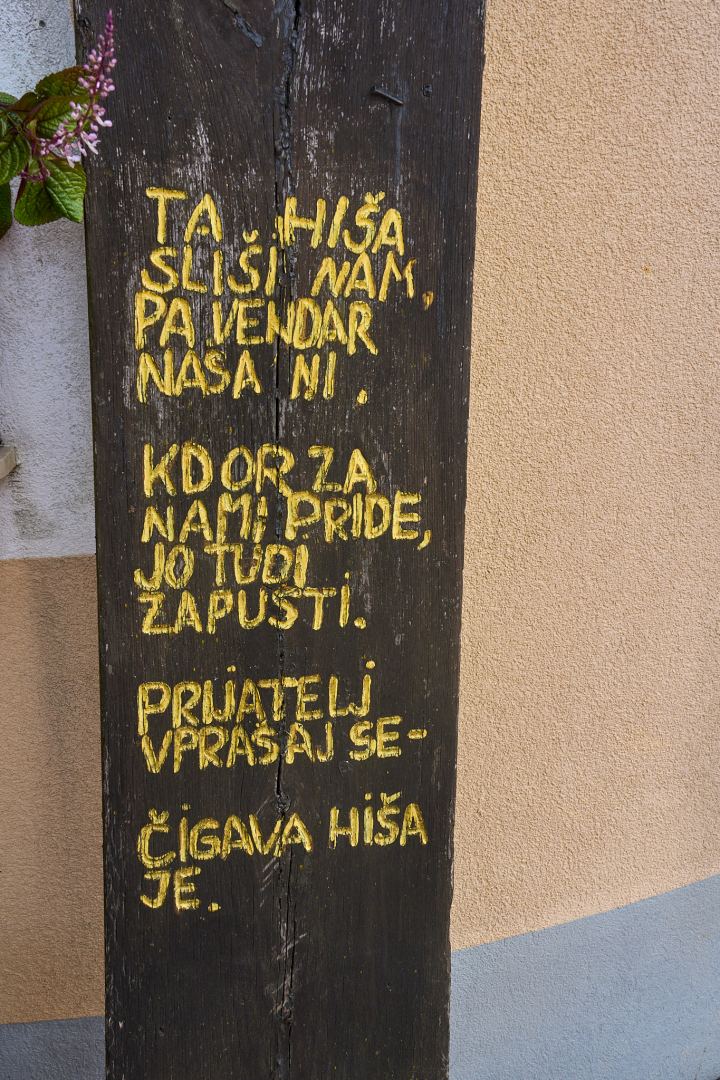 TA HIŠA
SLIŠI NAM,
PA VENDAR
NAŠA NI.
KDOR ZA
NAMI PRIDE,
JO TUDI
ZAPUSTI.
PRIJATELJ
VPRAŠAJ SE-
ČIGAVA HIŠA
JE.